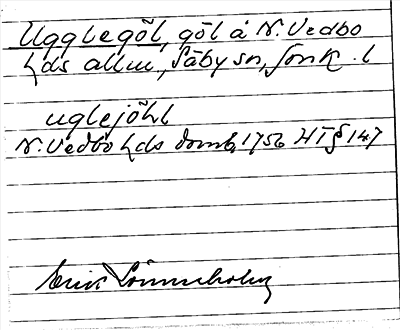 Ugglegöl, göl å N. Vedbo
hds allm, Säby sn, Jönk. l
uglejöhl
N. Vedbo hds domb, 1756 HT § 147
Erik Lönnerholm